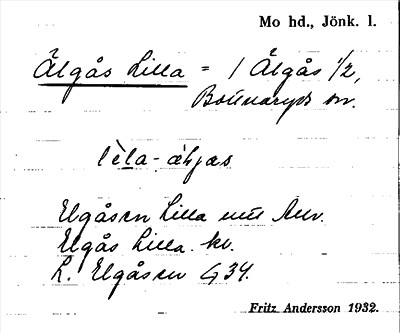 Mo hd., Jönk. l.
Älgås Lilla = 1 Älgås 1/2,
Bottnaryds sn.
Elgåsen Lilla
Elgås Lilla kv.
L. Elgåsen G 34.
Fritz Andersson 1932.